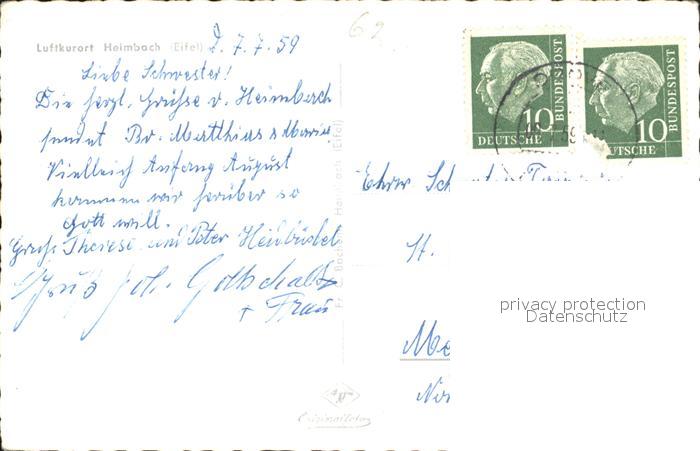 62
Luftkurort Heimbach (Eifel) d. 7.7.59
Liebe Schwester!
Die herzl. Grüsse v. Heimbach
sendet Br. Matthias u Maria
Vielleich Anfang August
kommen wir herüber so
Gott will.
Gruß Therese und Peter
Gruß Joh. Gottschalk
+ Frau
10
DEUTSCHE
BUNDESPOST
10
UTSCHE
BUNDESPOST
Ehrw. Sch
St.
Me
privacy protection
Datenschutz
Originalfoto